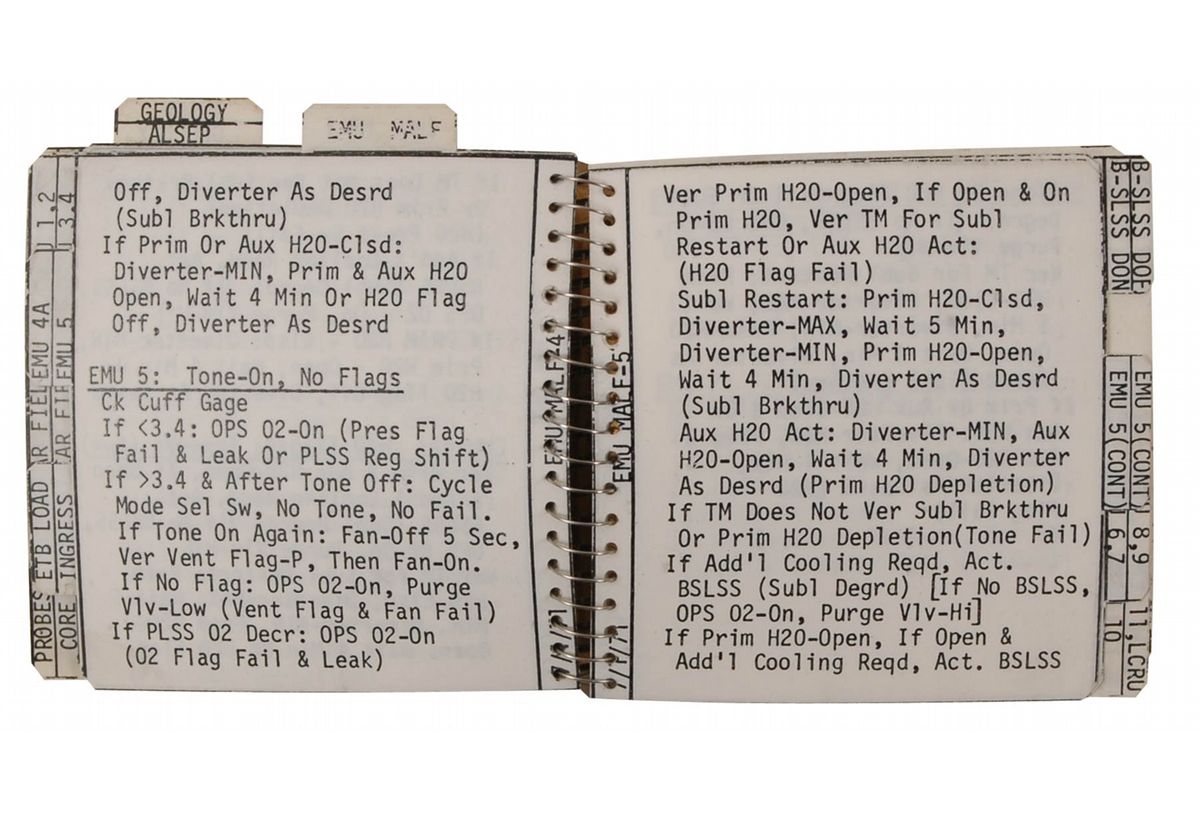 GEOLOGY
ALSEP
EMU MALF
Off, Diverter As Desrd
(Subl Brkthru)
If Prim Or Aux H2O-Clsd:
Diverter-MIN, Prim & Aux H2O
Open, Wait 4 Min Or H2O Flag
Off, Diverter As Desrd
EMU 5: Tone-On, No Flags
Ck Cuff Gage
If <3.4: OPS O2-On (Pres Flag
Fail & Leak Or PLSS Reg Shift)
If >3.4 & After Tone Off: Cycle
Mode Sel Sw, No Tone, No Fail.
If Tone On Again: Fan-Off 5 Sec,
Ver Vent Flag-P, Then Fan-On.
If No Flag: OPS O2-On, Purge
Vlv-Low (Vent Flag & Fan Fail)
If PLSS O2 Decr: OPS O2-On
(O2 Flag Fail & Leak)
EMU/MALF24
7/7/71
PROBES ETB LOAD
EMU 4A
1,2
CORE INGRESS
EMU 5
3,4
EMU MALF-5
7/7/71
Ver Prim H2O-Open, If Open & On
Prim H2O, Ver TM For Subl
Restart Or Aux H2O Act:
(H2O Flag Fail)
Subl Restart: Prim H2O-Clsd,
Diverter-MAX, Wait 5 Min,
Diverter-MIN, Prim H2O-Open,
Wait 4 Min, Diverter As Desrd
(Subl Brkthru)
Aux H2O Act: Diverter-MIN, Aux
H2O-Open, Wait 4 Min, Diverter
As Desrd (Prim H2O Depletion)
If TM Does Not Ver Subl Brkthru
Or Prim H2O Depletion(Tone Fail)
If Add'l Cooling Reqd, Act.
BSLSS (Subl Degrd) [If No BSLSS,
OPS O2-On, Purge Vlv-Hi]
If Prim H2O-Open, If Open &
Add'l Cooling Reqd, Act. BSLSS
B-SLSS DON
EMU 5(CONT)
6,7
10
B-SLSS DOF
EMU 5(CONT)
8,9
11,LCRU